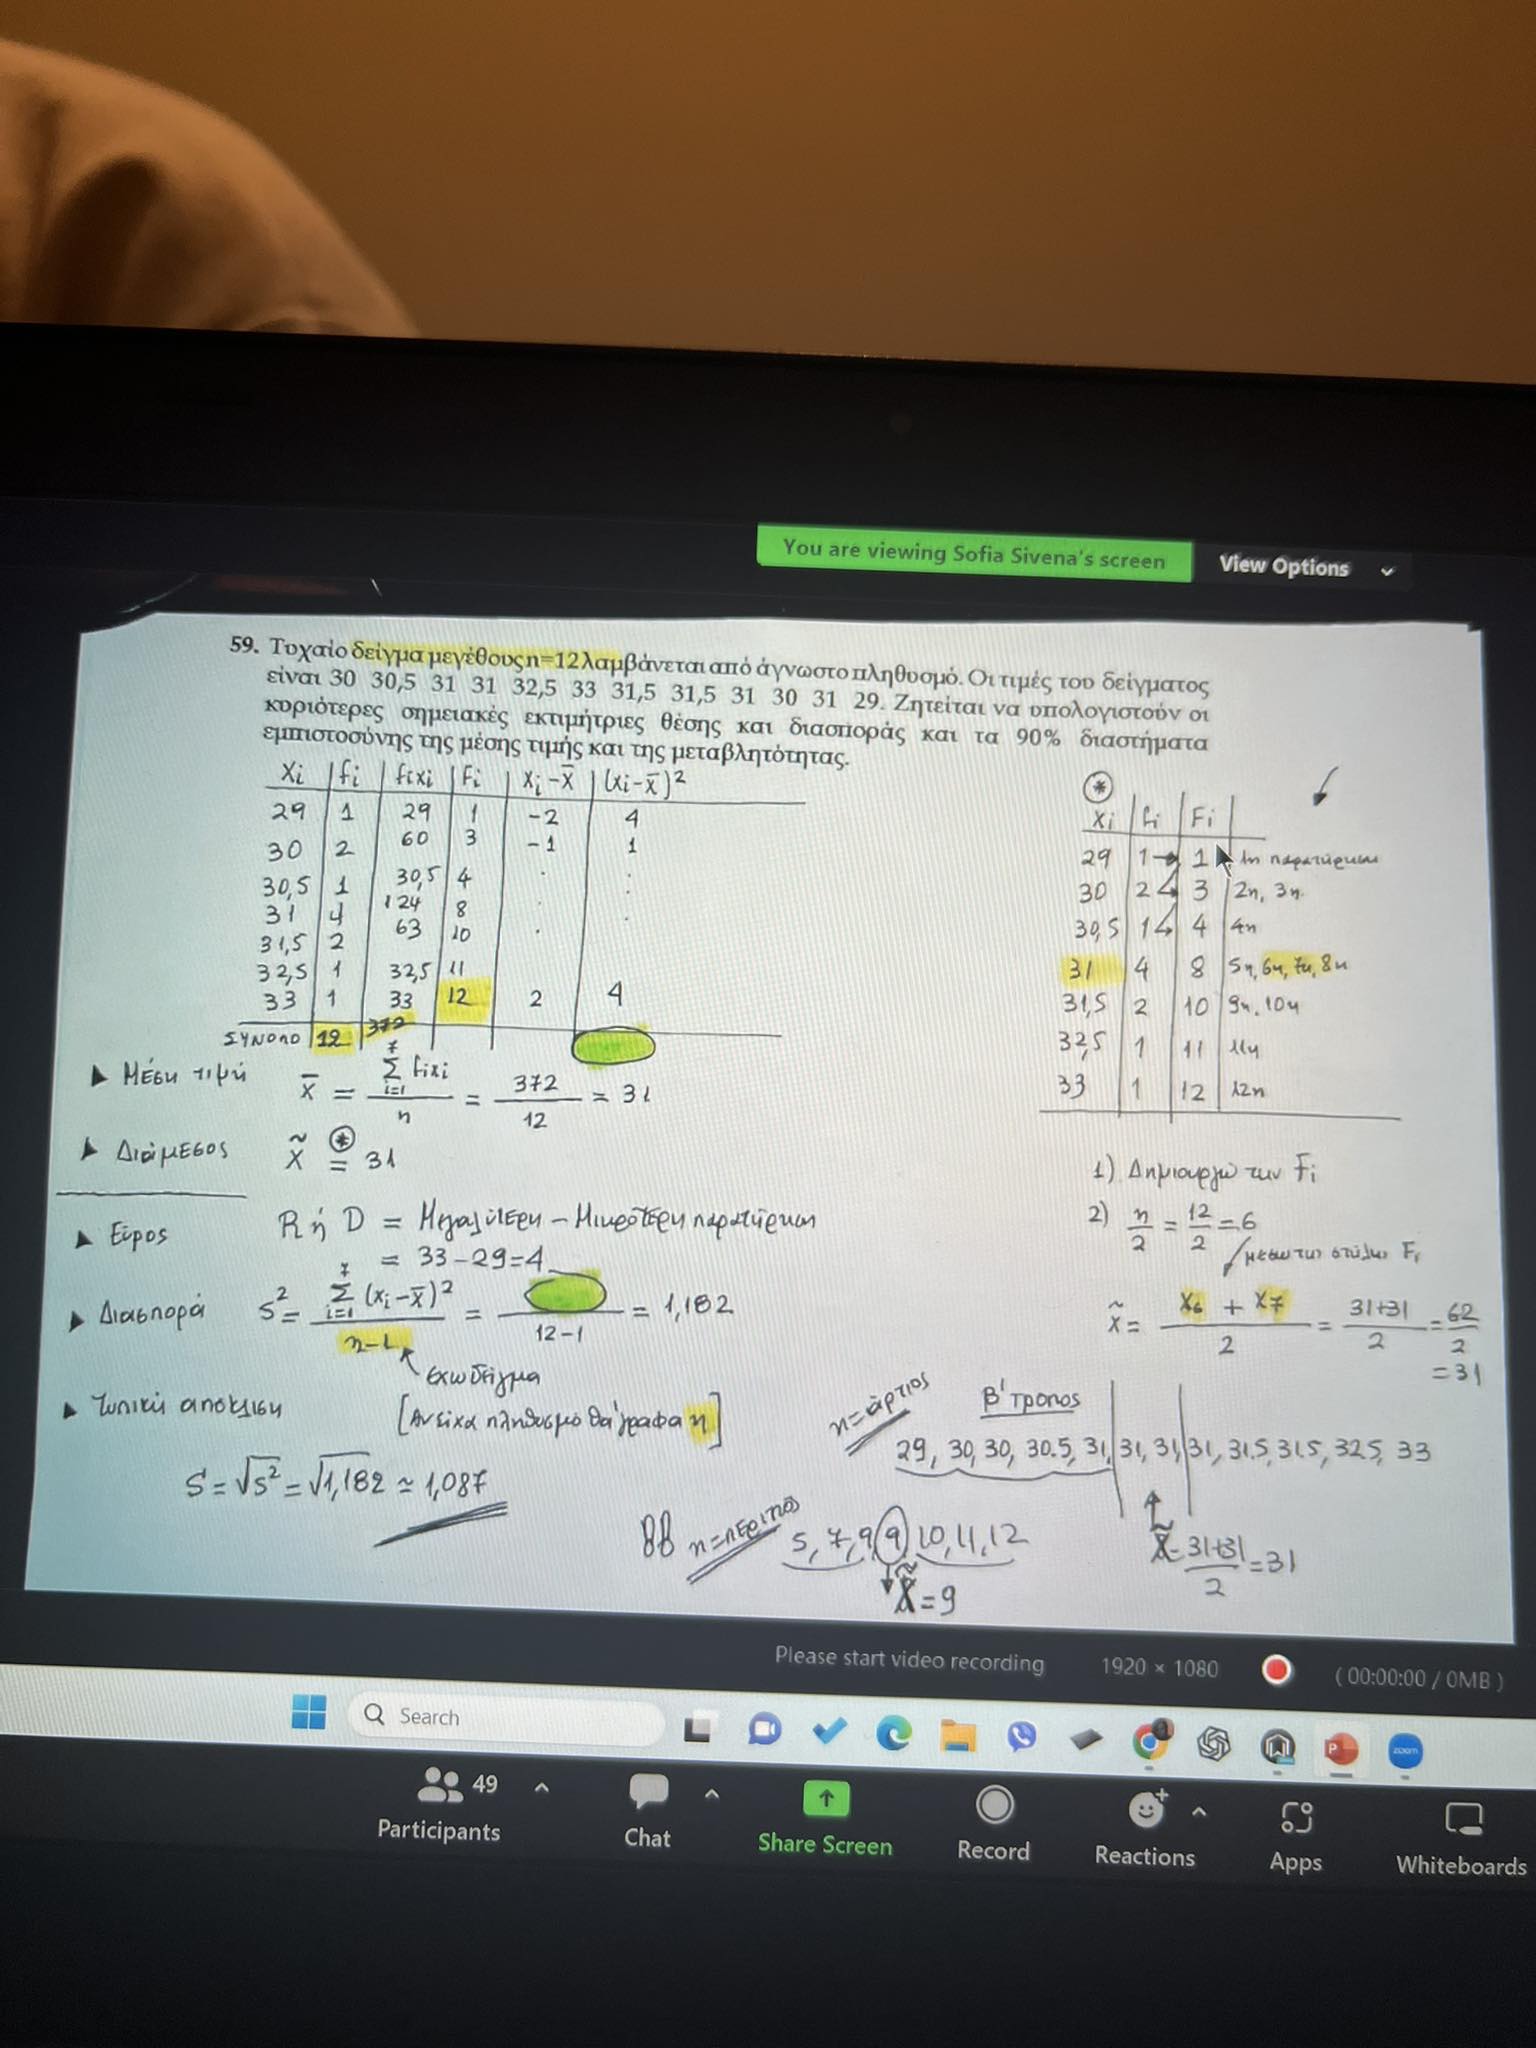 You are viewing Sofia Sivena's screen View Options
59. Τυχαίο δείγμα μεγέθους n=12 λαμβάνεται από άγνωστο πληθυσμό. Οι τιμές του δείγματος
είναι 30 30,5 31 31 32,5 33 31,5 31,5 31 30 31 29. Ζητείται να υπολογιστούν οι
κυριότερες σημειακές εκτιμήτριες θέσης και διασποράς και τα 90% διαστήματα
εμπιστοσύνης της μέσης τιμής και της μεταβλητότητας.
xi | fi | fixi | Fi | xi-x̄ | (xi-x̄)²
29 | 1 | 29 | 1 | -2 | 4
30 | 2 | 60 | 3 | -1 | 1
30,5 | 1 | 30,5 | 4 | . | .
31 | 4 | 124 | 8 | . | .
31,5 | 2 | 63 | 10 | .
32,5 | 1 | 32,5 | 11
33 | 1 | 33 | 12 | 2 | 4
ΣΥΝΟΛΟ | 12 | 372
▸ Μέση τιμή x̄ = Σ(i=1, 7) fixi / n = 372 / 12 = 31
▸ Διάμεσος x̃ ⊛= 31
▸ Εύρος R ή D = Μεγαλύτερη - Μικρότερη παρατήρηση
= 33-29=4
▸ Διασπορά s² = Σ(i=1, 7) (xi-x̄)² / n-1 = / 12-1 = 1,182
έχω δείγμα
[Αν είχα πληθυσμό θα έγραφα n]
▸ Τυπική απόκλιση
S=√s²=√1,182 ≃ 1,087
⊛
xi | fi | Fi
29 | 1 | 1 | 1η παρατήρηση
30 | 2 | 3 | 2η, 3η
30,5 | 1 | 4 | 4η
31 | 4 | 8 | 5η, 6η, 7η, 8η
31,5 | 2 | 10 | 9η, 10η
32,5 | 1 | 11 | 11η
33 | 1 | 12 | 12η
1) Δημιουργώ την Fi
2) n/2 = 12/2 = 6
μέσω της στήλης Fi
x̃ = x6 + x7 / 2 = 31+31 / 2 = 62/2
= 31
n=άρτιος Β' τρόπος
29, 30, 30, 30.5, 31, 31, 31, 31, 31.5, 31.5, 32.5, 33
x̃ = 31+31 / 2 = 31
n=περιττός 5, 7, 9, 9, 10, 11, 12
x̃=9
Please start video recording 1920 × 1080 (00:00:00 / 0MB)
Search
zoom
49
Participants Chat Share Screen Record Reactions Apps Whiteboards